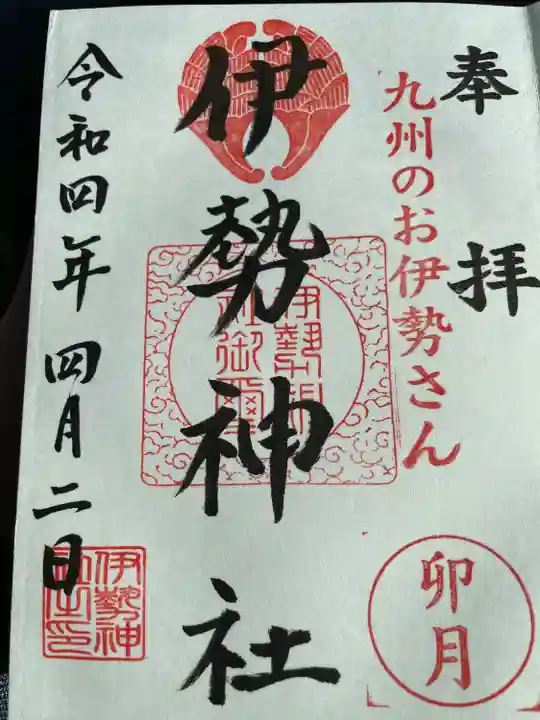 奉拝
九州のお伊勢さん
卯月
伊勢神社
伊勢神社御璽
令和四年四月二日
伊勢神